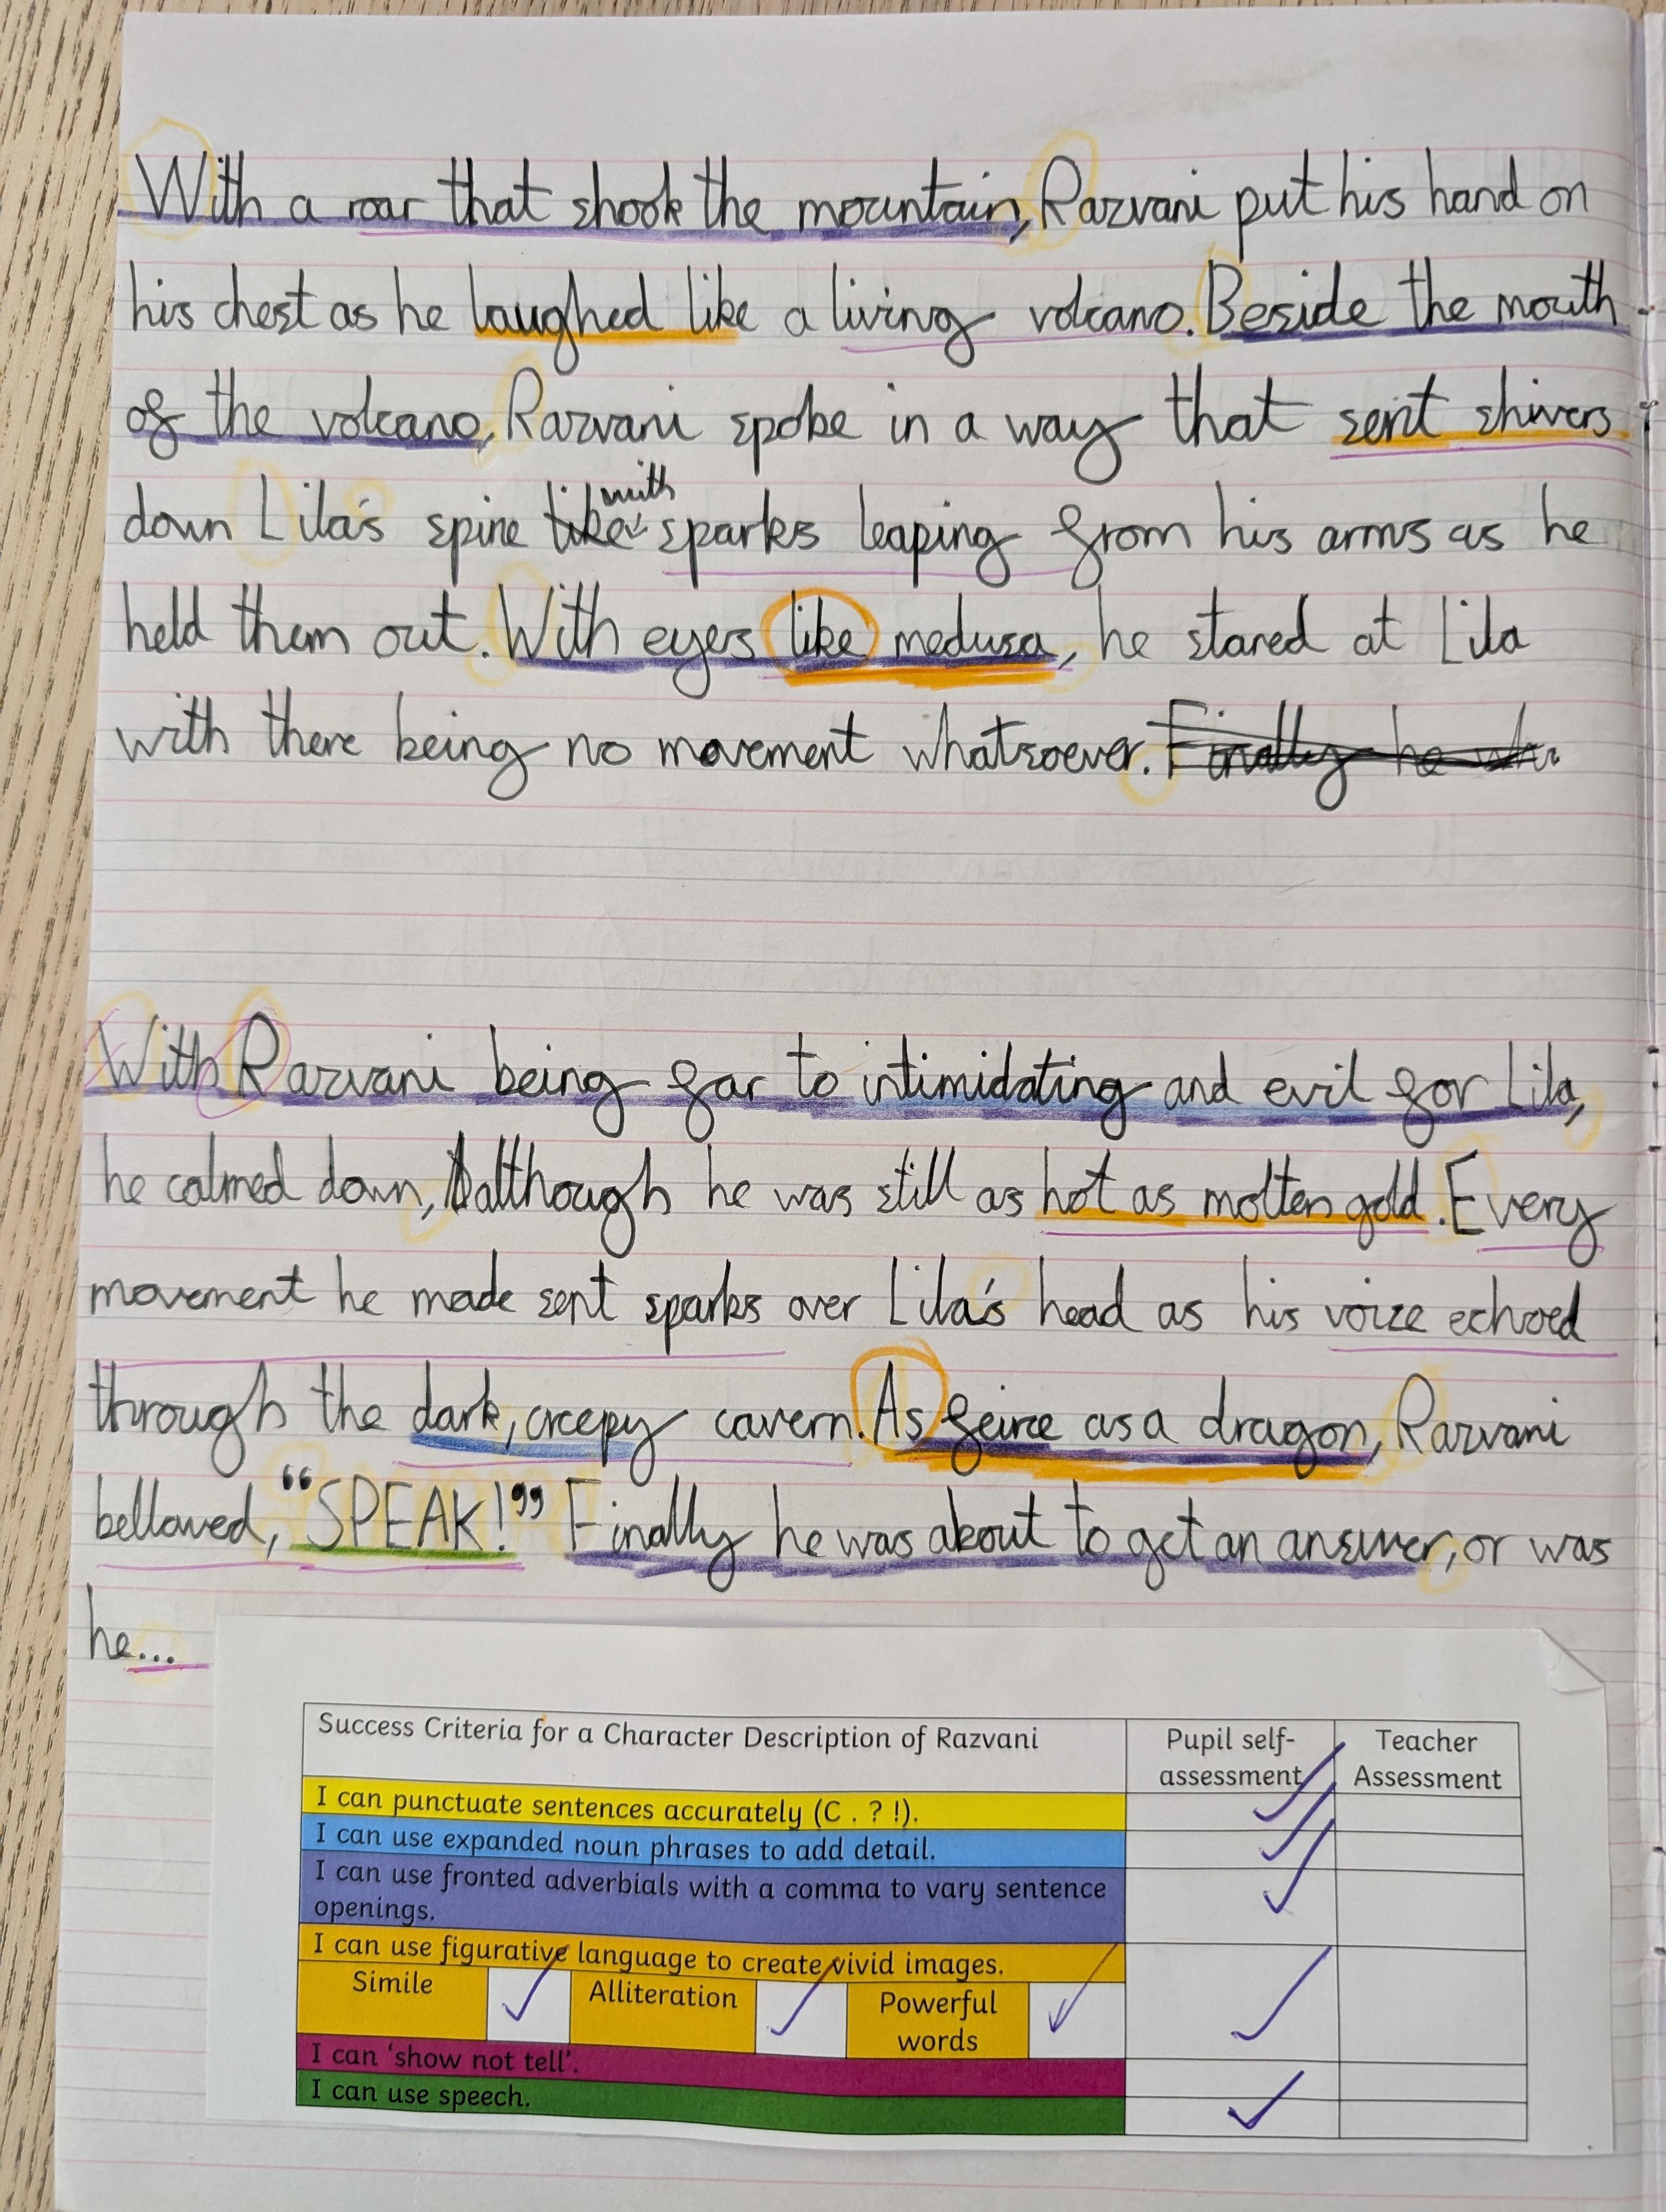 With a roar that shook the mountain, Razvani put his hand on
his chest as he laughed like a living volcano. Beside the mouth
of the volcano, Razvani spoke in a way that sent shivers
down Lila's spine like with sparks leaping from his arms as he
held them out. With eyes like medusa, he stared at Lila
with there being no movement whatsoever. Finally he
With Razvani being far to intimidating and evil for Lila,
he calmed down, although he was still as hot as molten gold. Every
movement he made sent sparks over Lila's head as his voice echoed
through the dark, creepy cavern. As feirce as a dragon, Razvani
bellowed, “SPEAK!” Finally he was about to get an answer, or was
he...
Success Criteria for a Character Description of Razvani
Pupil self-
assessment
Teacher
Assessment
I can punctuate sentences accurately (C . ? !).
I can use expanded noun phrases to add detail.
I can use fronted adverbials with a comma to vary sentence
openings.
I can use figurative language to create vivid images.
Simile
Alliteration
Powerful
words
I can 'show not tell'.
I can use speech.